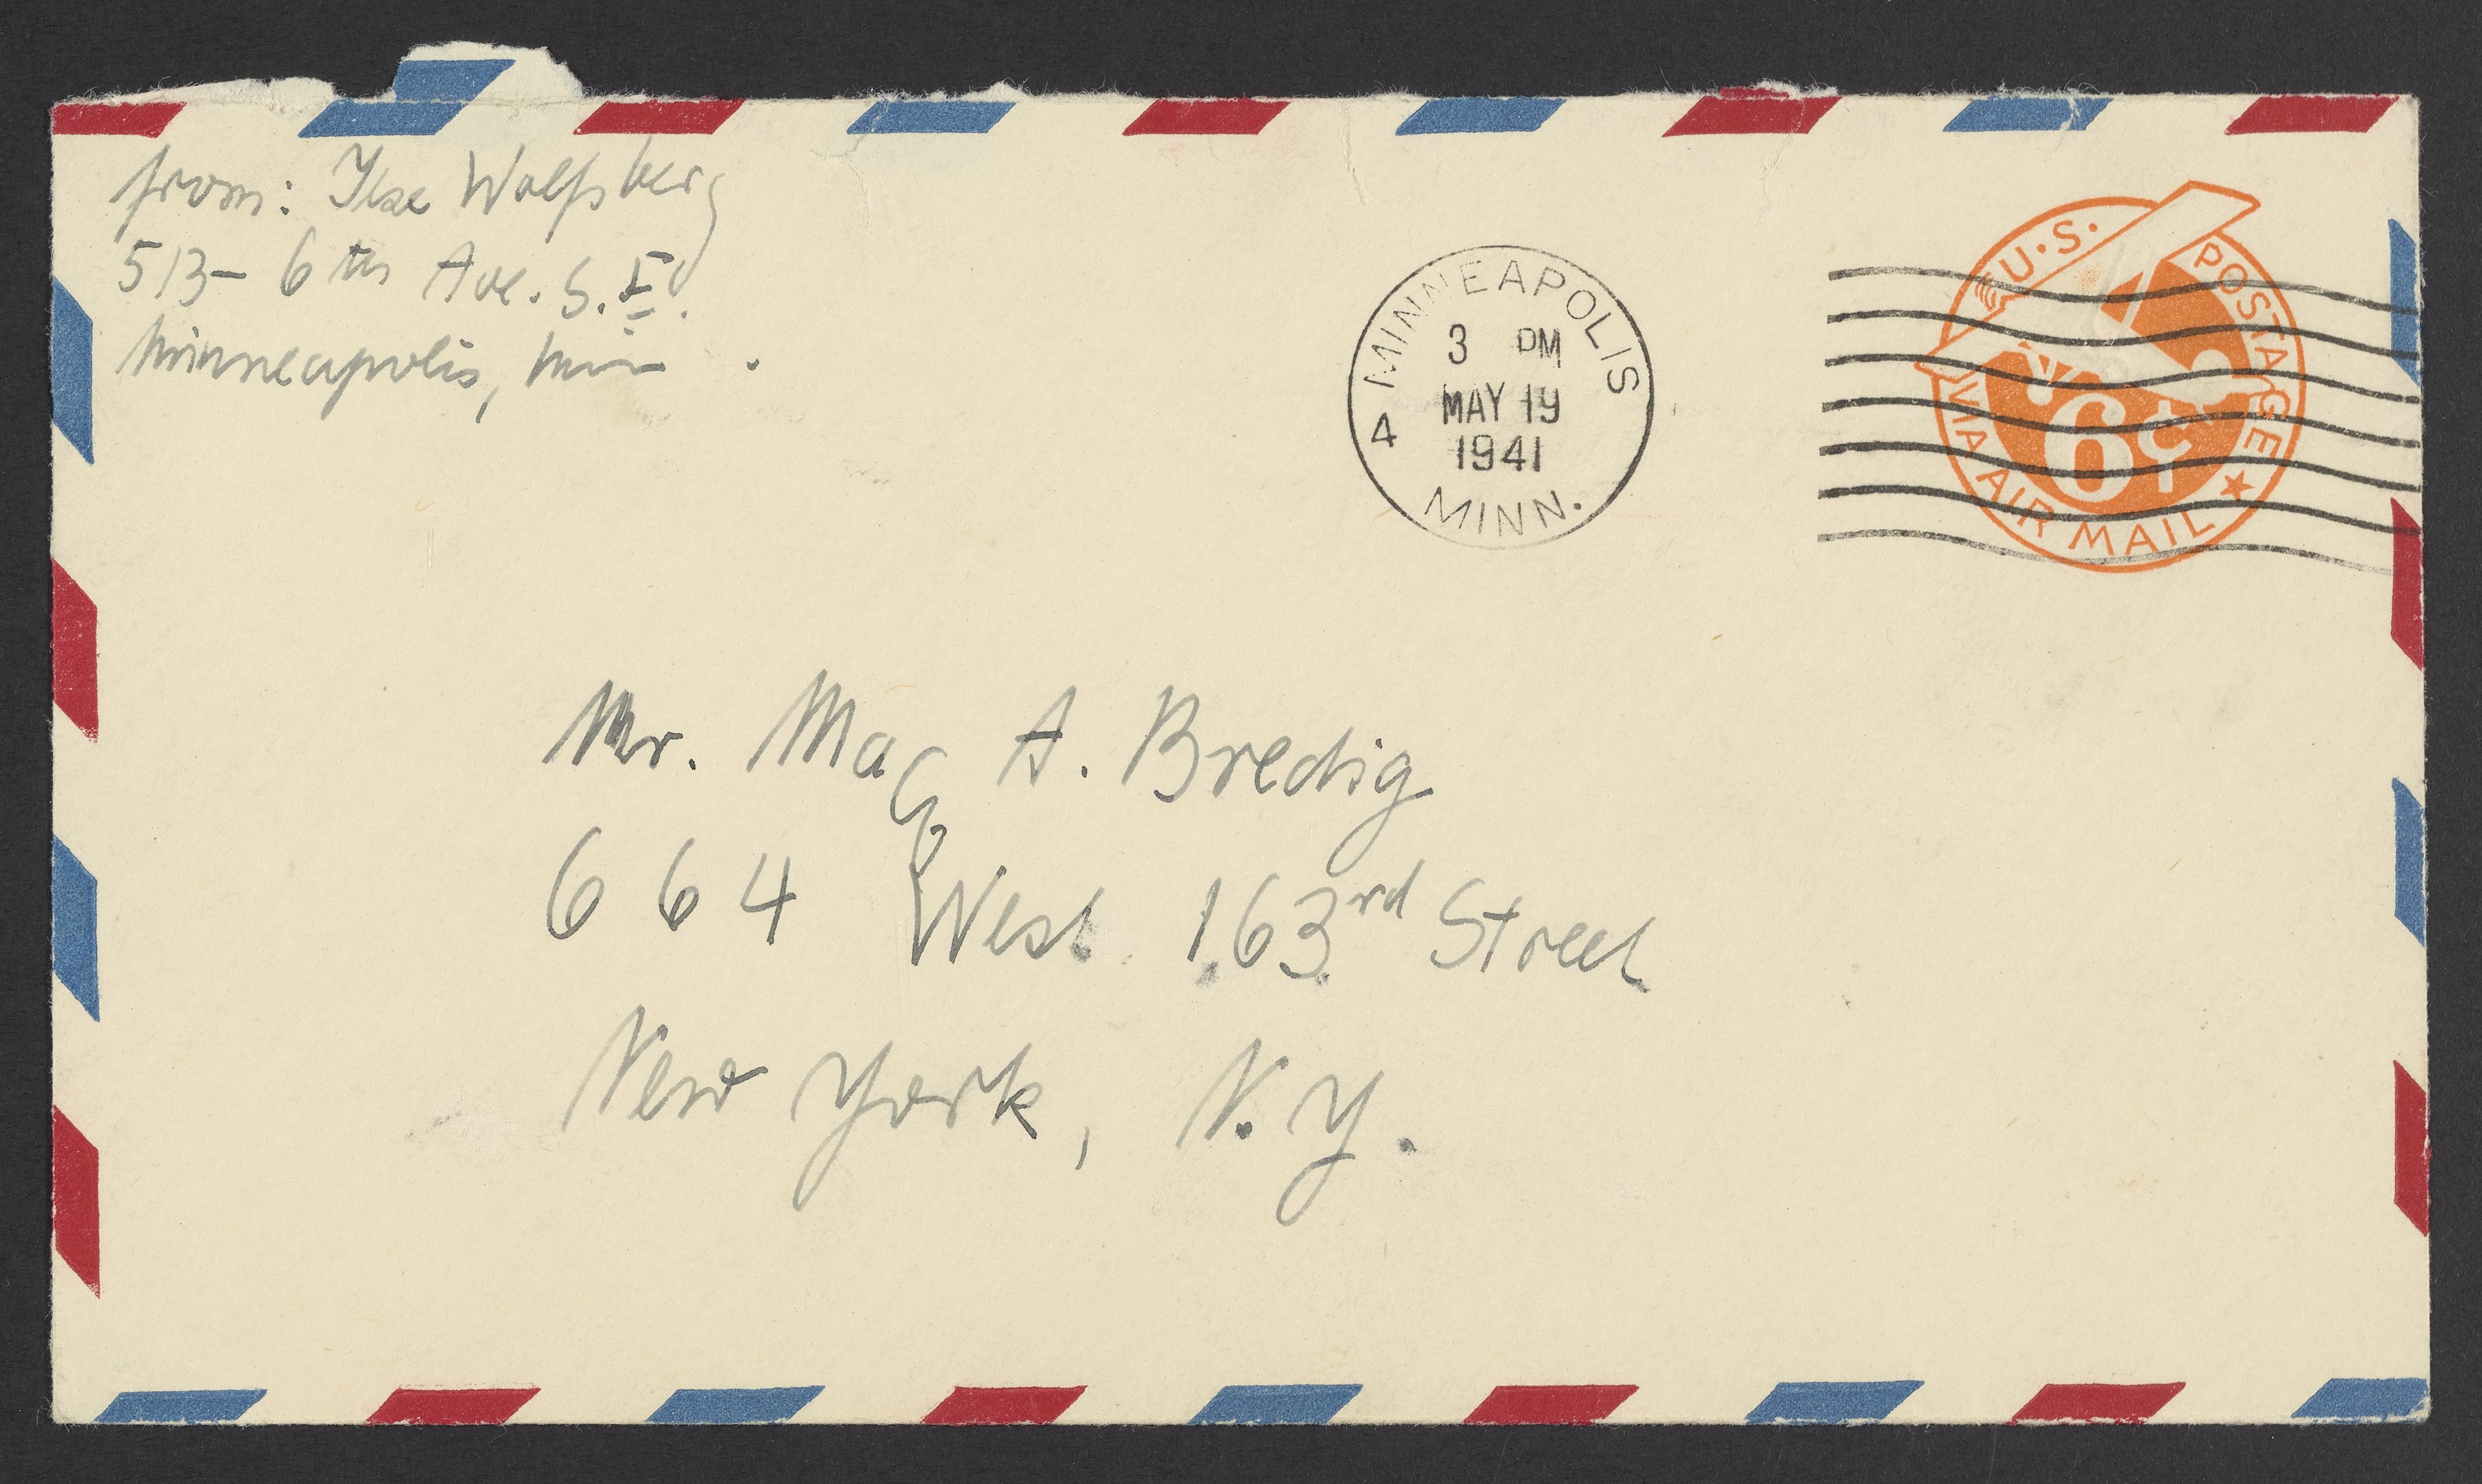 from: Ilse Wolfsberg
513- 6th Ave. S.E.
Minneapolis, Minn
MINNEAPOLIS
3 PM
MAY 19
1941
4
MINN.
U.S. POSTAGE
6¢
VIA AIR MAIL
Mr. Max A. Bredig
664 West 163rd Street
New York, N.Y.